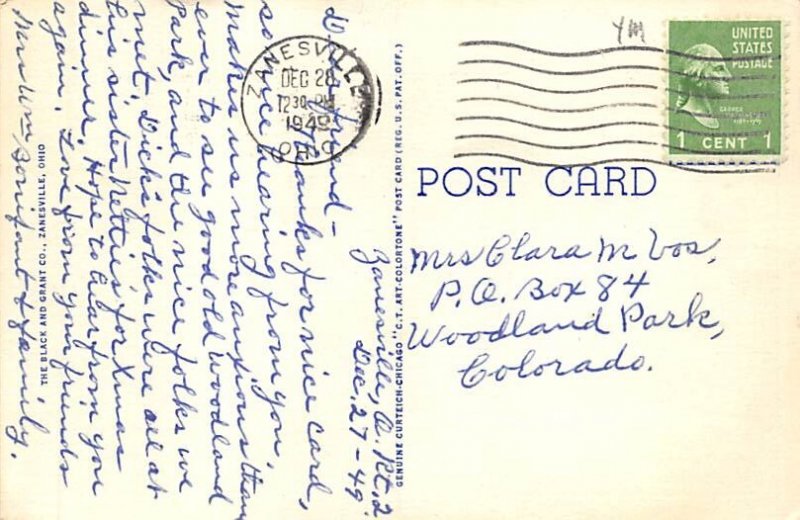 Zanesville, O. Rt. 2
Dec. 27-49
Dear friend-
Thanks for nice card,
so nice hearing from you.
Makes us more anxious than
ever to see good old Woodland
Park, and the nice folks we
met. Dick's folks were all at
his sister Nettie's for Xmas
dinner. Hope to hear from you
again. Love from your friends
Mrs Wm Bonifant & family.
THE BLACK AND GRANT CO., ZANESVILLE, OHIO
GENUINE CURTEICH-CHICAGO "C.T. ART-COLORTONE" POST CARD (REG. U.S. PAT. OFF.)
ZANESVILLE
DEC 28
1230 PM
1949
OHIO
YM
UNITED
STATES
POSTAGE
1 CENT 1
POST CARD
Mrs Clara M Vos,
P.O. Box 84
Woodland Park,
Colorado.